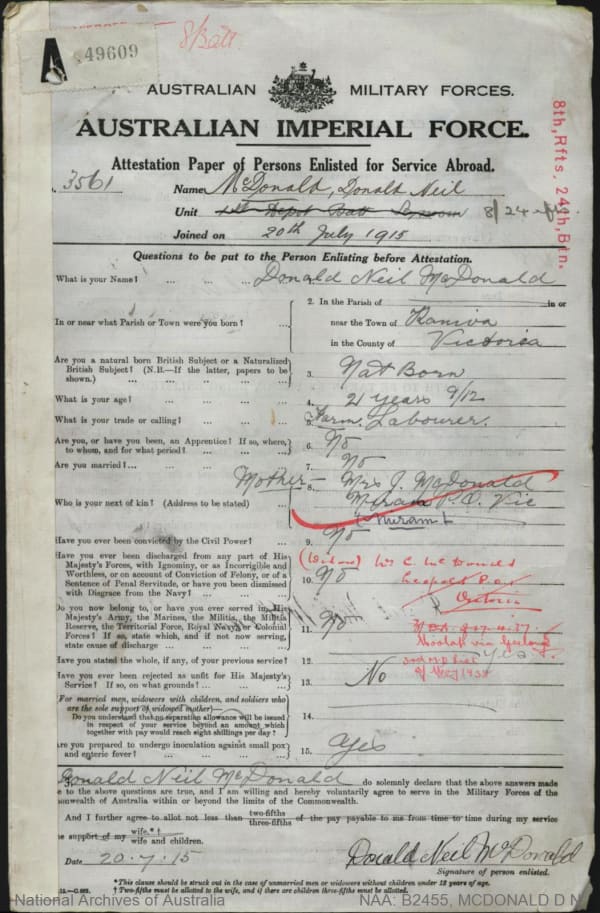 8/Batt
A 49609
AUSTRALIAN MILITARY FORCES.
AUSTRALIAN IMPERIAL FORCE.
8th, Rfts. 24th, Btn.
Attestation Paper of Persons Enlisted for Service Abroad.
3561 Name McDonald, Donald Neil
Unit Depot Batt 8/24
Joined on 20th July 1915
Questions to be put to the Person Enlisting before Attestation.
What is your Name? ... ... ... Donald Neil McDonald
2. In the Parish of in or
In or near what Parish or Town were you born? ... near the Town of Kaniva
in the County of Victoria
Are you a natural born British Subject or a Naturalized
British Subject? (N.B.—If the latter, papers to be
shown.) 3. Nat Born
What is your age? 4. 21 years 9/12
What is your trade or calling? 5. Farm Labourer.
Are you, or have you been, an Apprentice? If so, where,
to whom, and for what period? 6. No
Are you married? ... 7. No
Who is your next of kin? (Address to be stated) 8. Mother – Mrs J. McDonald
Miram P.O. Vic
Miram
Have you ever been convicted by the Civil Power? 9. No
Have you ever been discharged from any part of His
Majesty's Forces, with Ignominy, or as Incorrigible and
Worthless, or on account of Conviction of Felony, or of a
Sentence of Penal Servitude, or have you been dismissed
with Disgrace from the Navy? 10. No
(Widow) Mrs C. McDonald
Leopold
Victoria
Do you now belong to, or have you ever served in, His
Majesty's Army, the Marines, the Militia, the Militia
Reserve, the Territorial Force, Royal Navy or Colonial
Forces? If so, state which, and if not now serving,
state cause of discharge 11. No
via Geelong
Have you stated the whole, if any, of your previous service? 12. Yes
Have you ever been rejected as unfit for His Majesty's
Service? If so, on what grounds? 13. No
(For married men, widowers with children, and soldiers who
are the sole support of widowed mother)—
Do you understand that no separation allowance will be issued
in respect of your service beyond an amount which
together with pay would reach eight shillings per day? 14.
Are you prepared to undergo inoculation against small pox
and enteric fever? 15. Yes
Donald Neil McDonald do solemnly declare that the above answers made
to the above questions are true, and I am willing and hereby voluntarily agree to serve in the Military Forces of the
Commonwealth of Australia within or beyond the limits of the Commonwealth.
And I further agree to allot not less than two-fifths three-fifths of the pay payable to me from time to time during my service
support of my wife.*† wife and children.
Date 20.7.15 Donald Neil McDonald
Signature of person enlisted.
*This clause should be struck out in the case of unmarried men or widowers without children under 18 years of age.
†Two-fifths must be allotted to the wife, and if there are children three-fifths must be allotted.
National Archives of Australia NAA: B2455, MCDONALD D N